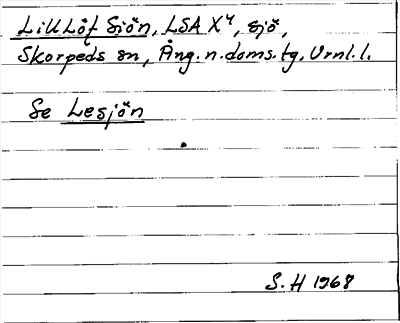 Lill Löf Siön, LSA X4, sjö,
Skorpeds sn, Ång. n. doms. tg, Vrnl. l.
Se Lesjön
S. H 1968